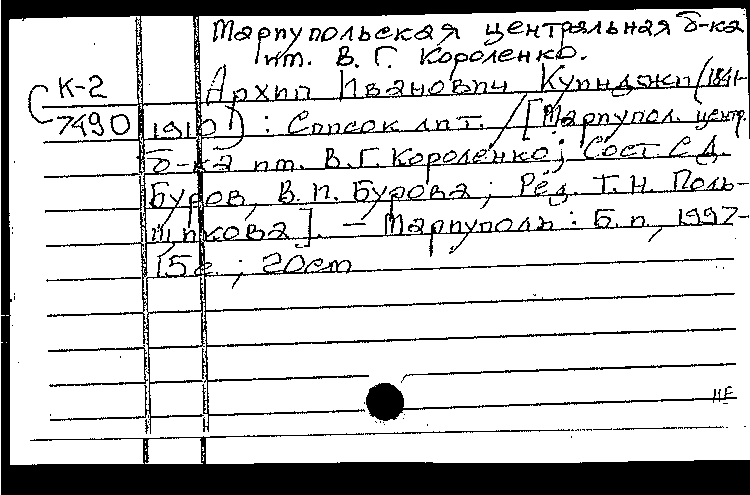 Мариупольская центральная б-ка
им. В. Г. Короленко.
К-2 Архип Иванович Куинджи (1841-
7490 1910) : Список лит. / [Мариупол. центр.
б-ка им. В. Г. Короленко; Сост С. Д.
Буров, В. П. Бурова; Ред. Т. Н. Поль-
щикова]. – Мариуполь : Б. и, 1997-
15с ; 20см
НЕ